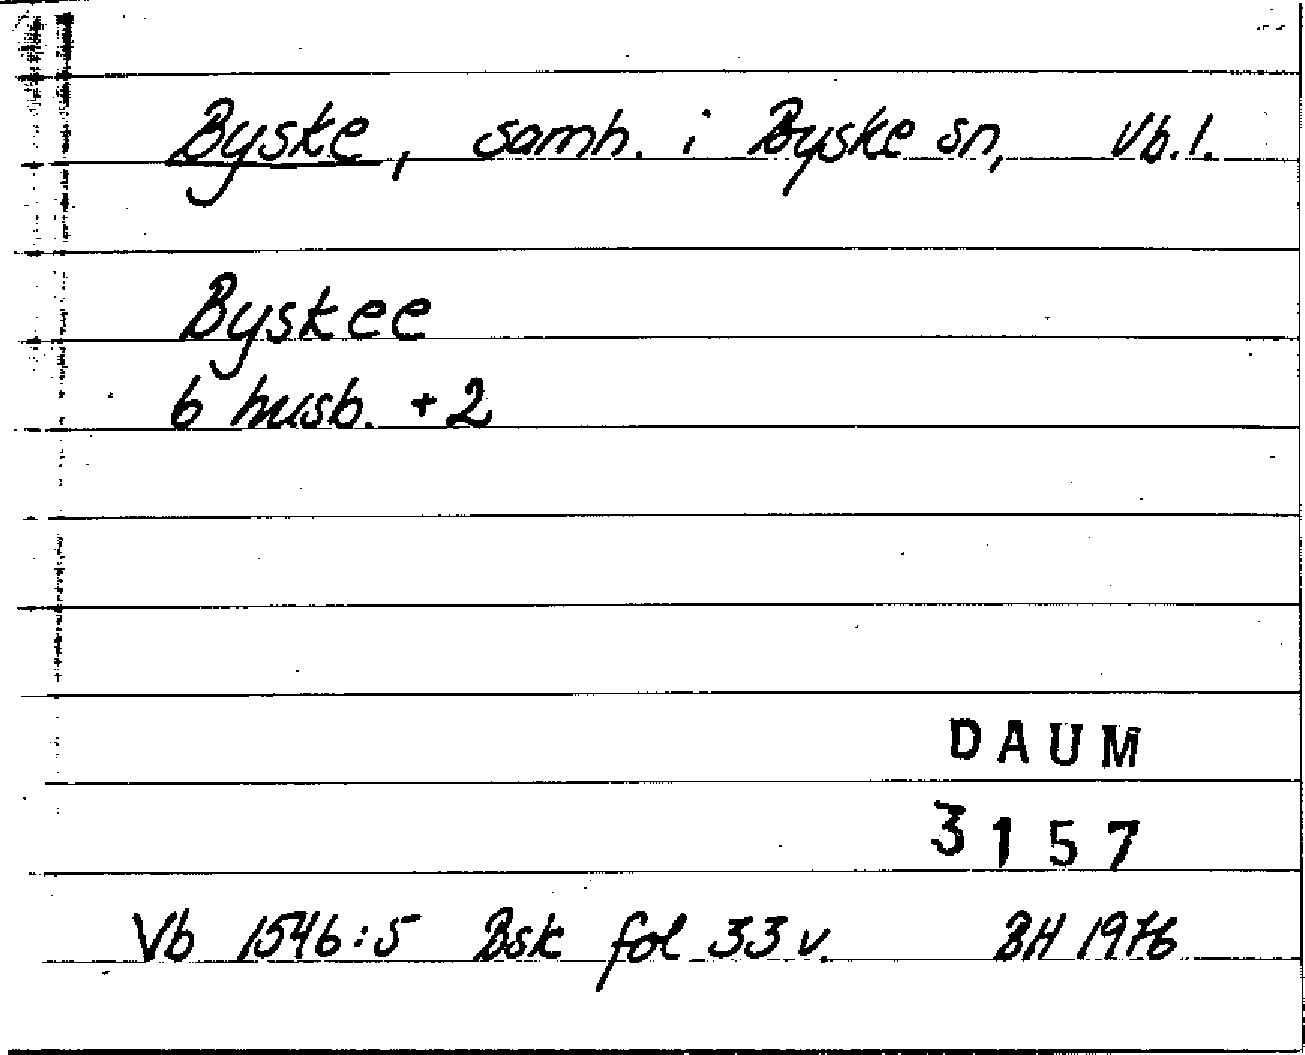 Byske, samh. i Byske sn, Vb.l.
Byskee
6 husb. + 2
DAUM
3157
Vb 1546:5 Bsk fol 33 v. BH 1976